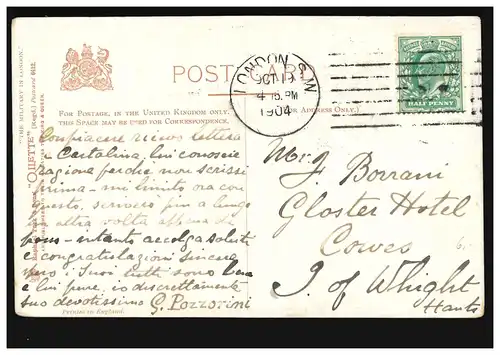 POST CARD
FOR POSTAGE, IN THE UNITED KINGDOM ONLY,
THIS SPACE MAY BE USED FOR CORRESPONDENCE.
ADDRESS ONLY.)
"THE MILITARY IN LONDON."
"OILETTE" [Regd.] Postcard 6412.
LONDON. S.W.
OCT 11
4 15 PM
1904
HALF PENNY
Con piacere ricevo lettera
e Cartolina, lui conoscie
ragione perche non scrissi
prima - mi limito ora con
questo, scriverò più a lungo
altra volta appena
intanto accolga saluti
e congratulazioni sincere
Suoi tutti sono bene
e lui pure, io discrettamente
suo devotissimo G. Pozzorini
Printed in England.
Mr. J. Borrani
Gloster Hotel
Cowes
I of Whight
Hants